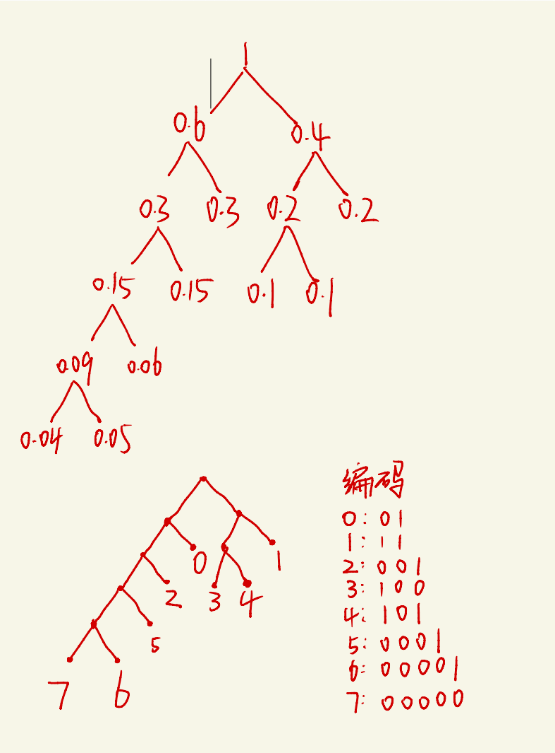 1
0.6 0.4
0.3 0.3 0.2 0.2
0.15 0.15 0.1 0.1
0.09 0.06
0.04 0.05
编码
0: 01
1: 11
2: 001
3: 100
4: 101
5: 0001
6: 00001
7: 00000
0 1
2 3 4
5
7 6